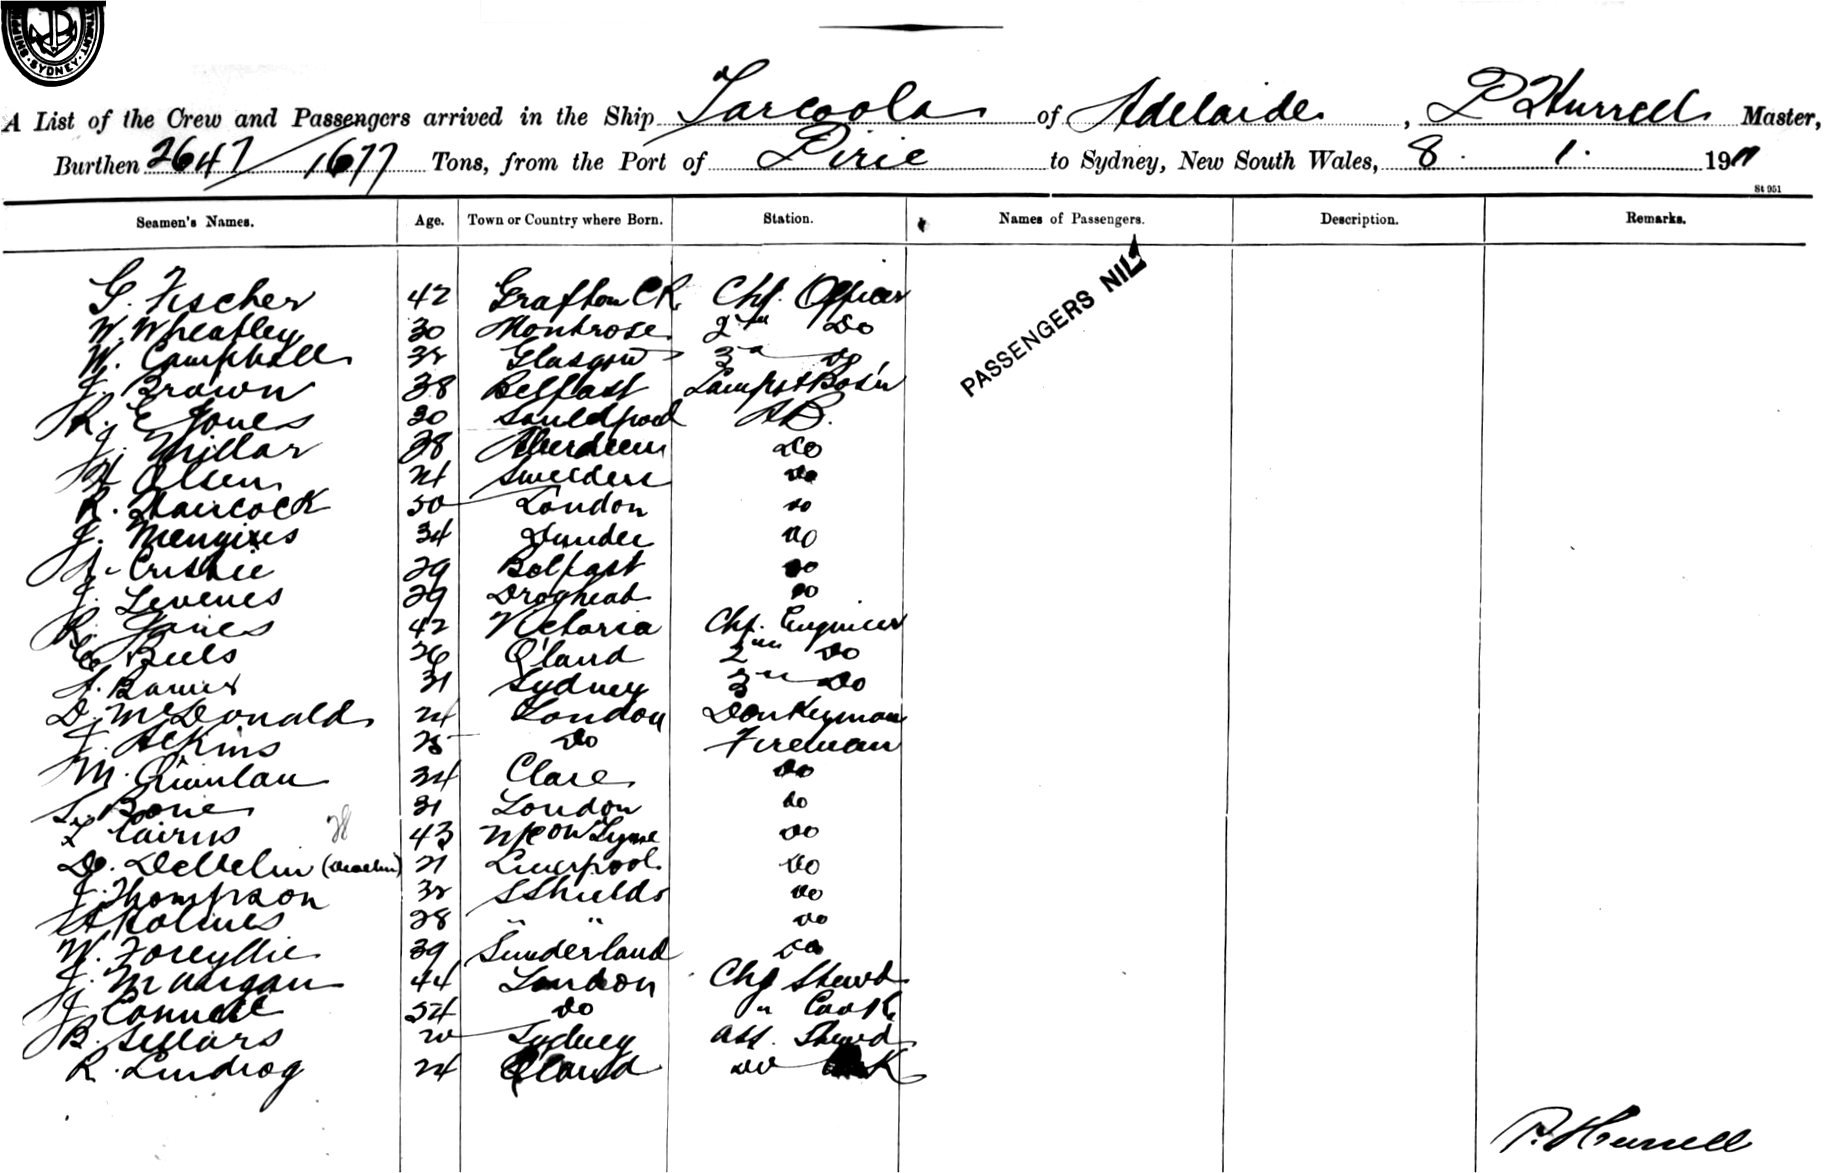 SYDNEY
A List of the Crew and Passengers arrived in the Ship Tarcoola of Adelaide, P Hurrell Master,
Burthen 2647/1677 Tons, from the Port of Pirie to Sydney, New South Wales, 8. 1. 1911
St 951
Seamen's Names. Age. Town or Country where Born. Station. Names of Passengers. Description. Remarks.
PASSENGERS NIL
G. Fischer 42 Grafton C.R. Chf. Officer
W. Wheatley 30 Montrose 2nd Do
W. Campbell Glasgow 3rd do
J. Brown 38 Belfast Lamps & Bos'n
R. E. Jones 30 AB.
J. Millar 38 Aberdeen Do
Olsen 24 Sweeden Do
R. Haircock 50 London do
J. Menzies 34 Dundee do
29 Belfast do
J. Levenes 29 Droghead do
R. Jones 42 Victoria Chf. Engineer
Beels 26 Q'land 2nd Do
A. 31 Sydney 3rd Do
D. McDonald 24 London Donkeyman
J. Atkins 25 Do Fireman
M. Quinlan 34 Clare Do
Bone 31 London do
Cairns 28 43 N/C on Tyne do
D. Devlin 21 Liverpool Do
J. Thompson S Shields do
A Holmes 28 " " do
W. 39 Sunderland do
J. 44 London Chf Stewd
J. Connell 54 do " Cook
B. Sellars 20 Sydney Ass. Stewd
R. Lindrog 24 Q'land do K
P. Hurrell